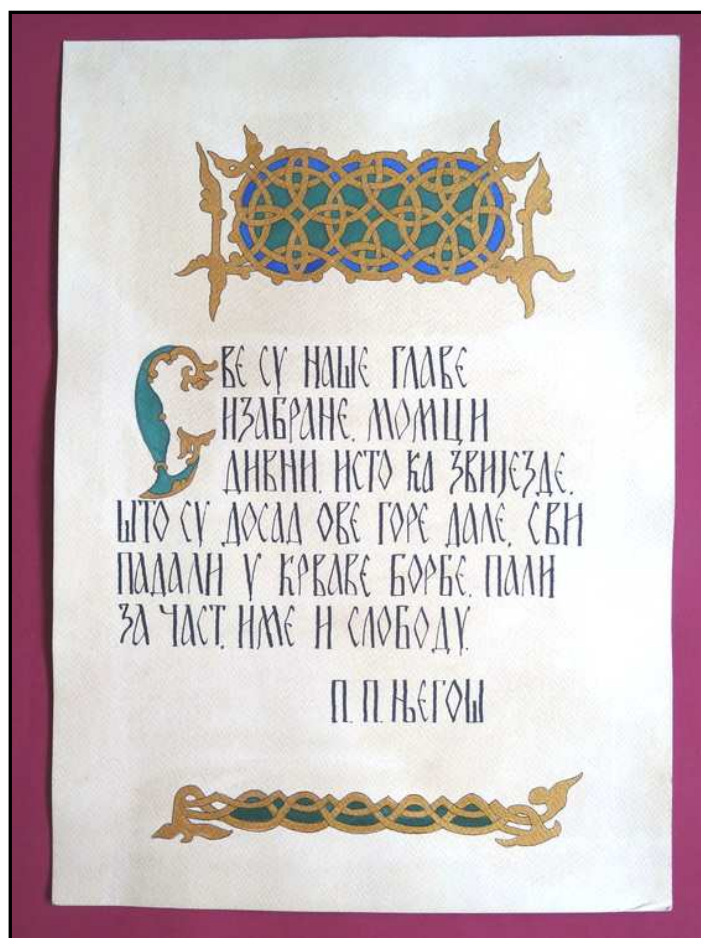 СВЕ СУ НАШЕ ГЛАВЕ
ИЗАБРАНЕ. МОМЦИ
ДИВНИ. ИСТО КА ЗВИЈЕЗДЕ.
ШТО СУ ДОСАД ОВЕ ГОРЕ ДАЛЕ. СВИ
ПАДАЛИ У КРВАВЕ БОРБЕ. ПАЛИ
ЗА ЧАСТ. ИМЕ И СЛОБОДУ.
П. П. ЊЕГОШ